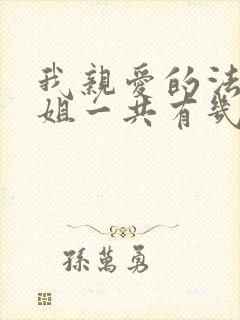 我親愛的法
姐一共有幾
孫萬勇